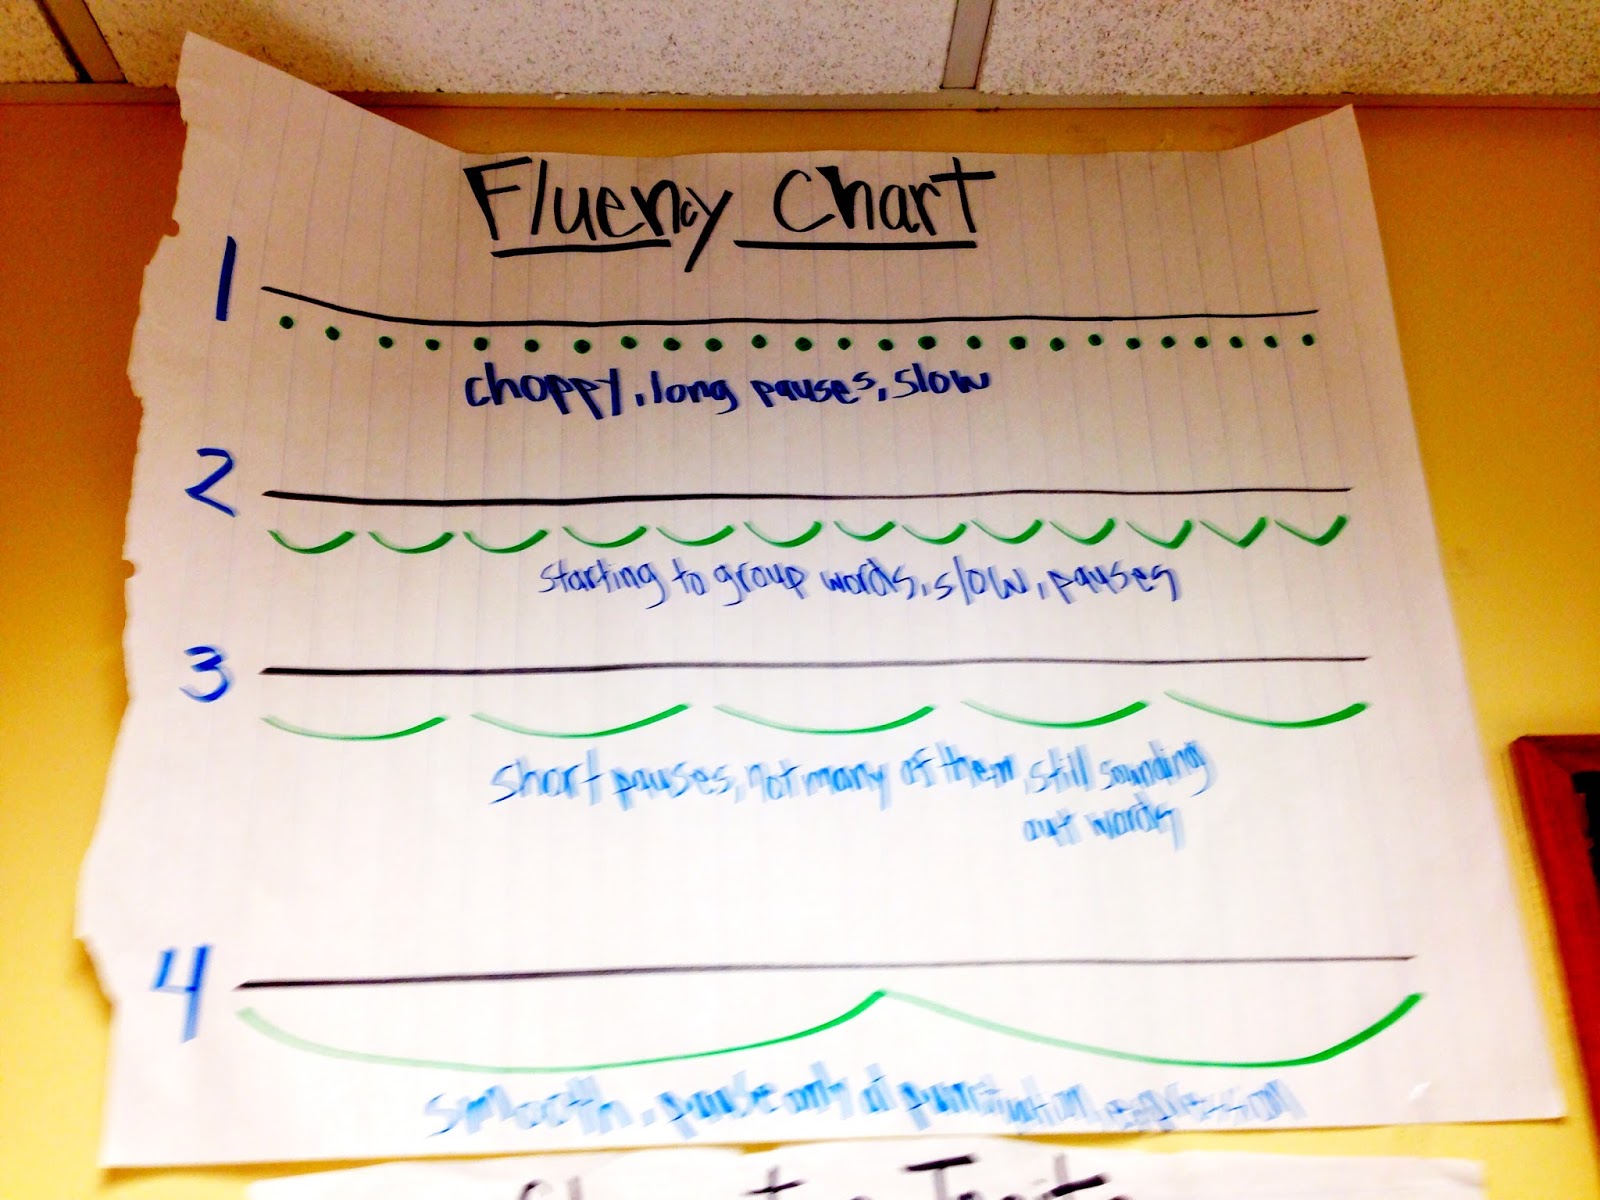 Fluency Chart
1
choppy, long pauses, slow
2
starting to group words, slow, pauses
3
short pauses, not many of them, still sounding
out words
4
smooth, pause only at punctuation, expression
Traits